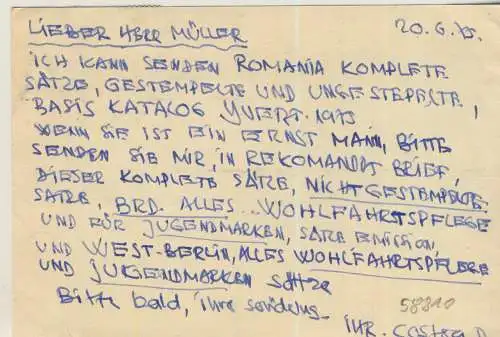 LIEBER HERR MÜLLER
20.6.75.
ICH KANN SENDEN ROMANIA KOMPLETE
SÄTZE, GESTEMPELTE UND UNGESTEPELTE,
BASIS KATALOG YVERT 1973
WENN SIE IST EIN ERNST MANN, BITTE
SENDEN SIE MIR, IN REKOMANDAT BRIEF,
DIESER KOMPLETE SÄTZE, NICHTGESTEMPELTE,
SATZE, BRD. ALLES... WOHLFAHRTSPFLEGE
UND FÜR JUGENDMARKEN, SATZE EMISSION,
UND WEST-BERLIN, ALLES WOHLFAHRTSPFLEGE
UND JUGENDMARKEN SÄTZE
Bitte bald, ihre
58810
IHR.